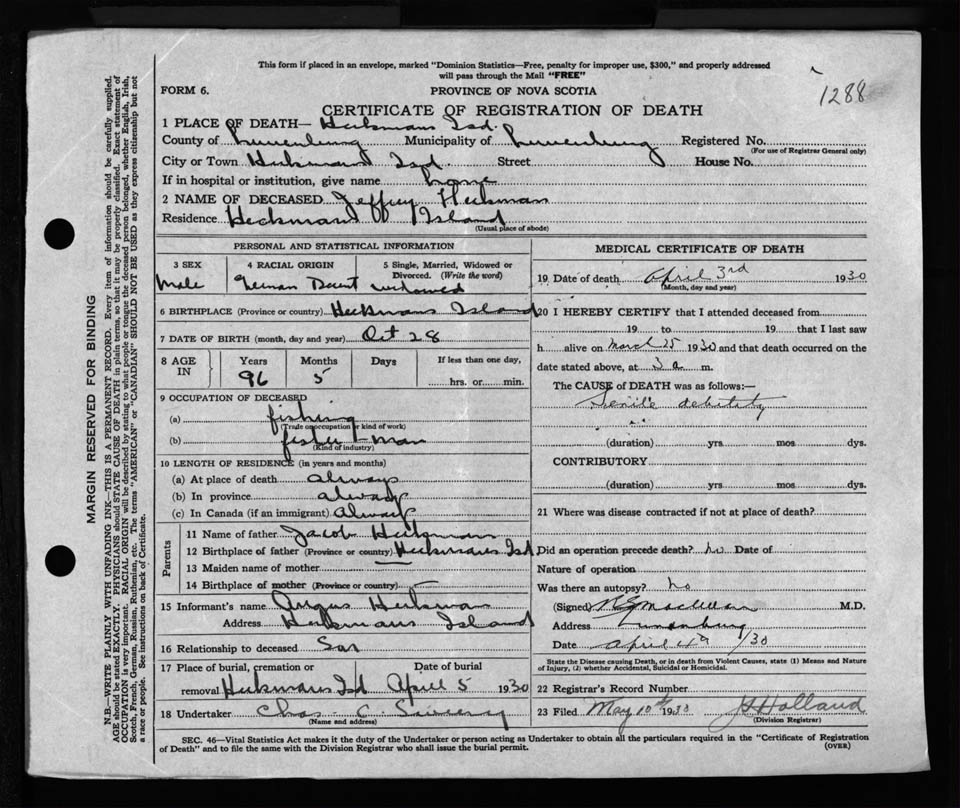 This form if placed in an envelope, marked "Dominion Statistics—Free, penalty for improper use, $300," and properly addressed
will pass through the Mail "FREE"
1288
FORM 6.
PROVINCE OF NOVA SCOTIA
CERTIFICATE OF REGISTRATION OF DEATH
1 PLACE OF DEATH— Heckmans Isd.
County of Lunenburg Municipality of Lunenburg Registered No.
(For use of Registrar General only)
City or Town Heckmans Isd. Street House No.
If in hospital or institution, give name home
2 NAME OF DECEASED Jeffrey Heckman
Residence Heckmans Island
(Usual place of abode)
PERSONAL AND STATISTICAL INFORMATION
3 SEX 4 RACIAL ORIGIN 5 Single, Married, Widowed or Divorced. (Write the word)
Male German Decent widowed
6 BIRTHPLACE (Province or country) Heckmans Island
7 DATE OF BIRTH (month, day and year) Oct 28
8 AGE IN Years Months Days If less than one day,
96 5 hrs. or min.
9 OCCUPATION OF DECEASED
(a) fishing
(Trade or occupation or kind of work)
(b) fisher-man
(Kind of industry)
10 LENGTH OF RESIDENCE (in years and months)
(a) At place of death always
(b) In province always
(c) In Canada (if an immigrant) Always
Parents
11 Name of father Jacob Heckman
12 Birthplace of father (Province or country) Heckmans Isd
13 Maiden name of mother —
14 Birthplace of mother (Province or country) —
15 Informant's name Angus Heckman
Address Heckmans Island
16 Relationship to deceased Son
17 Place of burial, cremation or Date of burial
removal Heckmans Isd April 5 1930
18 Undertaker Chas. C.
(Name and address)
MEDICAL CERTIFICATE OF DEATH
19 Date of death April 3rd 1930
(Month, day and year)
20 I HEREBY CERTIFY that I attended deceased from
19 to 19 that I last saw
h alive on March 25 1930 and that death occurred on the
date stated above, at 3 a m.
The CAUSE of DEATH was as follows:—
Senile debility
(duration) yrs mos dys.
CONTRIBUTORY
(duration) yrs mos dys.
21 Where was disease contracted if not at place of death?
Did an operation precede death? no Date of
Nature of operation
Was there an autopsy? no
(Signed) M.D.
Address Lunenburg
Date April 4th /30
State the Disease causing Death, or in death from Violent Causes, state (1) Means and Nature
of Injury, (2) whether Accidental, Suicidal or Homicidal.
22 Registrar's Record Number
23 Filed May 10th 1930 Holland
(Division Registrar)
SEC. 46—Vital Statistics Act makes it duty of the Undertaker or person acting as Undertaker to obtain all the particulars required in the "Certificate of Registration
of Death" and to file the same with the Division Registrar who shall issue the burial permit.
(OVER)
MARGIN RESERVED FOR BINDING
N.B.—WRITE PLAINLY WITH UNFADING INK—THIS IS A PERMANENT RECORD. Every item of information should be carefully supplied.
AGE should be stated EXACTLY. PHYSICIANS should STATE CAUSE OF DEATH in plain terms, so that it may be properly classified. Exact statement of
OCCUPATION is very important. RACIAL ORIGIN will be described by stating to what people or tongue the deceased person belonged, whether English, Irish,
Scotch, French, German, Russian, Ruthenian, etc. The terms "AMERICAN" or "CANADIAN" SHOULD NOT BE USED as they express citizenship but not
a race or people. See instructions on back of Certificate.